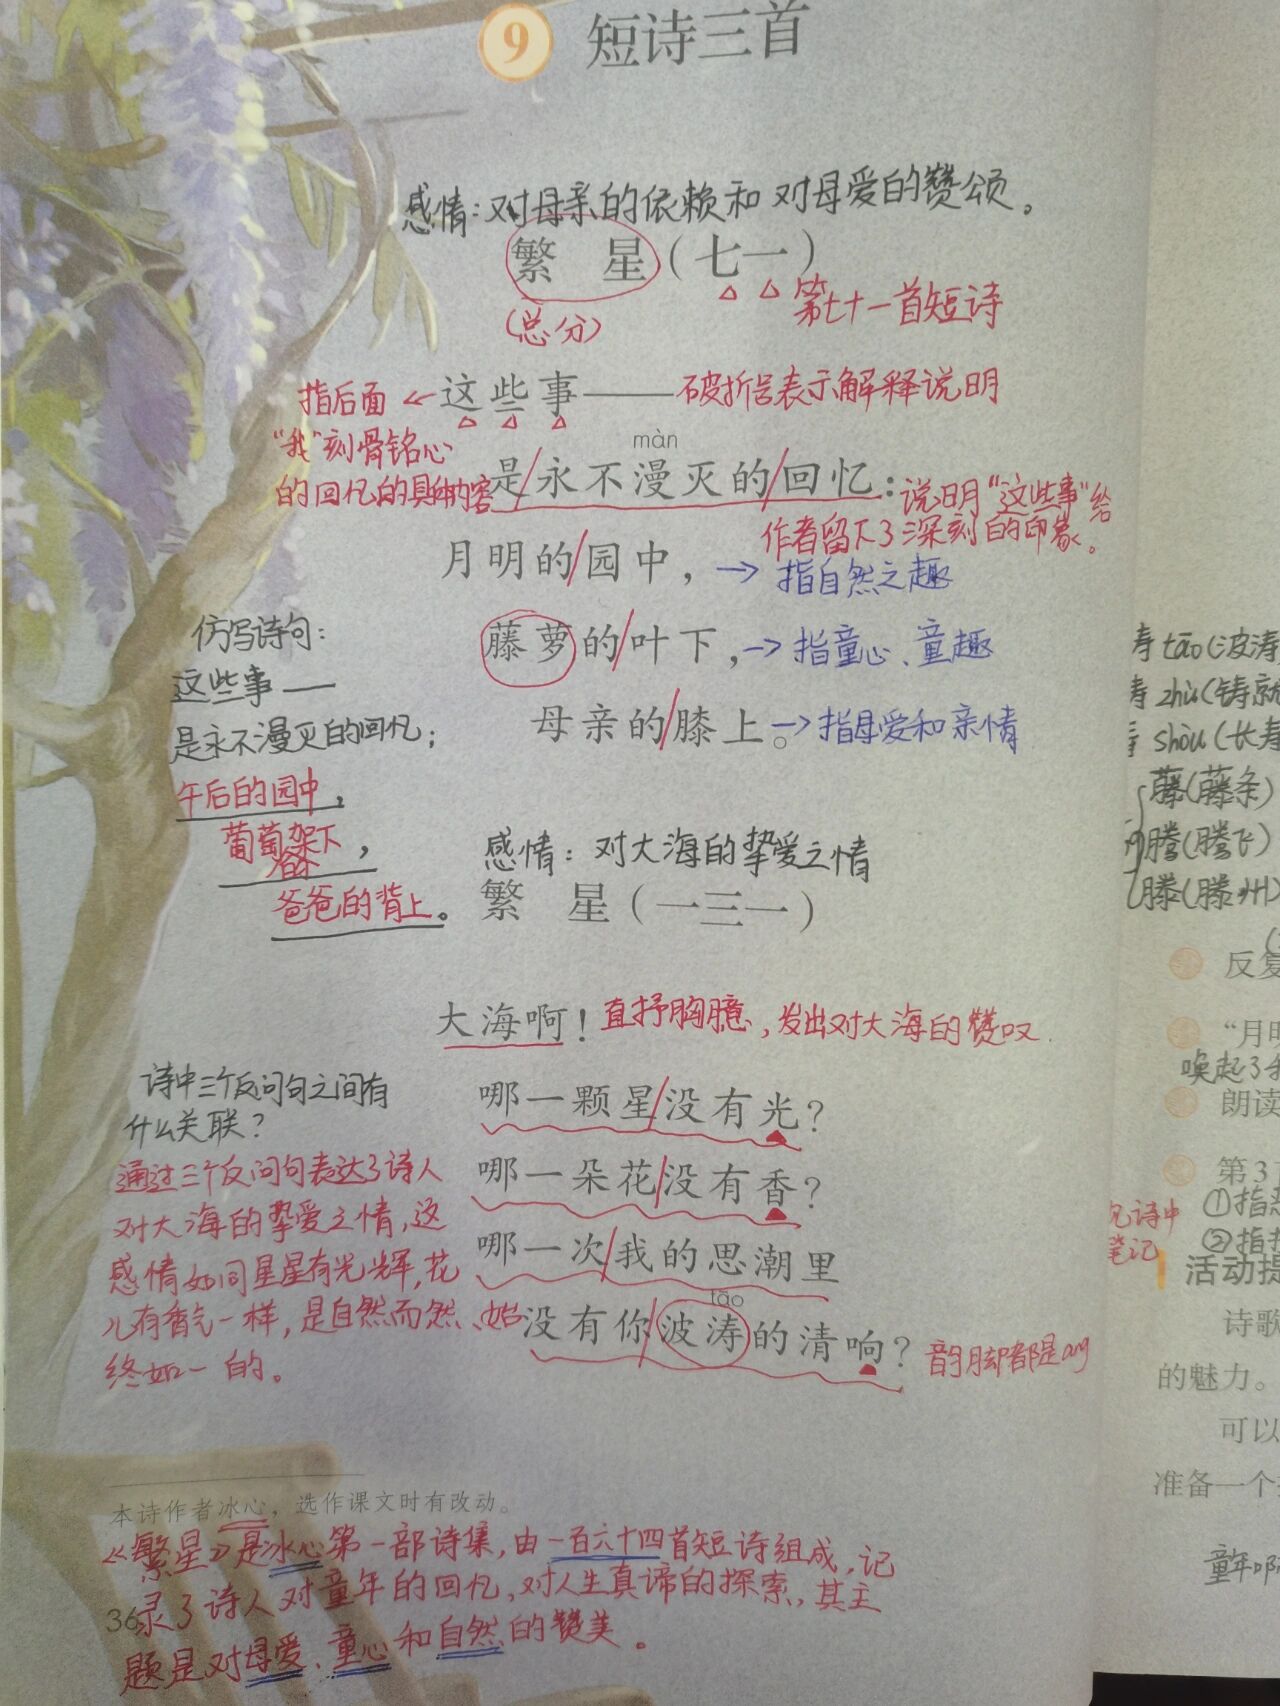 9 短诗三首
感情：对母亲的依赖和对母爱的赞颂。
繁 星（七一）
第七十一首短诗
（总分）
指后面 ← 这些事——破折号表示解释说明
“我”刻骨铭心
màn
的回忆的具体内容
是/永不漫灭的/回忆：说明“这些事”给
作者留下了深刻的印象。
月明的/园中，→ 指自然之趣
藤萝的/叶下，→指童心、童趣
母亲的/膝上。→指母爱和亲情
仿写诗句：
这些事——
是永不漫灭的回忆；
午后的园中，
葡萄架下，
爸爸的背上。
感情：对大海的挚爱之情
繁 星（一三一）
大海啊！直抒胸臆，发出对大海的赞叹.
哪一颗星/没有光？
哪一朵花/没有香？
哪一次/我的思潮里
tāo
没有你/波涛的清响？韵脚都是ang
诗中三个反问句之间有
什么关联？
通过三个反问句表达了诗人
对大海的挚爱之情，这
感情如同星星有光辉，花
儿有香气一样，是自然而然、始
终如一的。
本诗作者冰心，选作课文时有改动。
《繁星》是冰心第一部诗集，由一百六十四首短诗组成，记
录了诗人对童年的回忆，对人生真谛的探索，其主
题是对母爱、童心和自然的赞美。
36
tāo（波涛
zhù（铸就
shòu（长寿
藤（藤条）
腾（腾飞）
滕（滕州）
反复
“月明
唤起了我
朗读
第3
见诗中
笔记
①指
②指
活动提
诗歌
的魅力。
可以
准备一个
童年啊